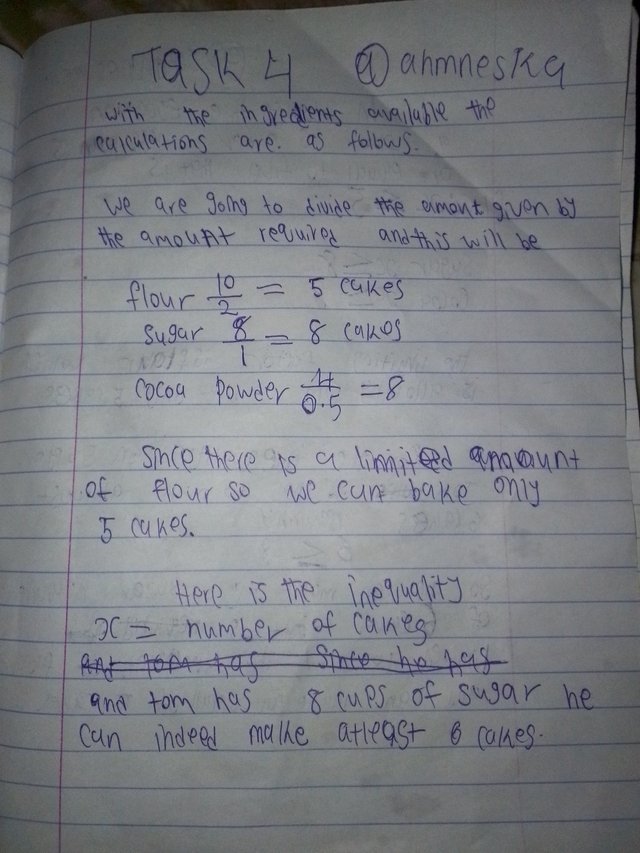 TASK 4 @ahmneska
with the ingredients available the
calculations are. as follows.
we are going to divide the amount given by
the amount required and this will be
flour 10/2 = 5 cakes
sugar 8/1 = 8 cakes
cocoa powder 4/0.5 = 8
Since there is a limited amount
of flour so we can bake only
5 cakes.
Here is the inequality
x = number of cakes
and tom has Since he has
and tom has 8 cups of sugar he
can indeed make atleast 6 cakes.